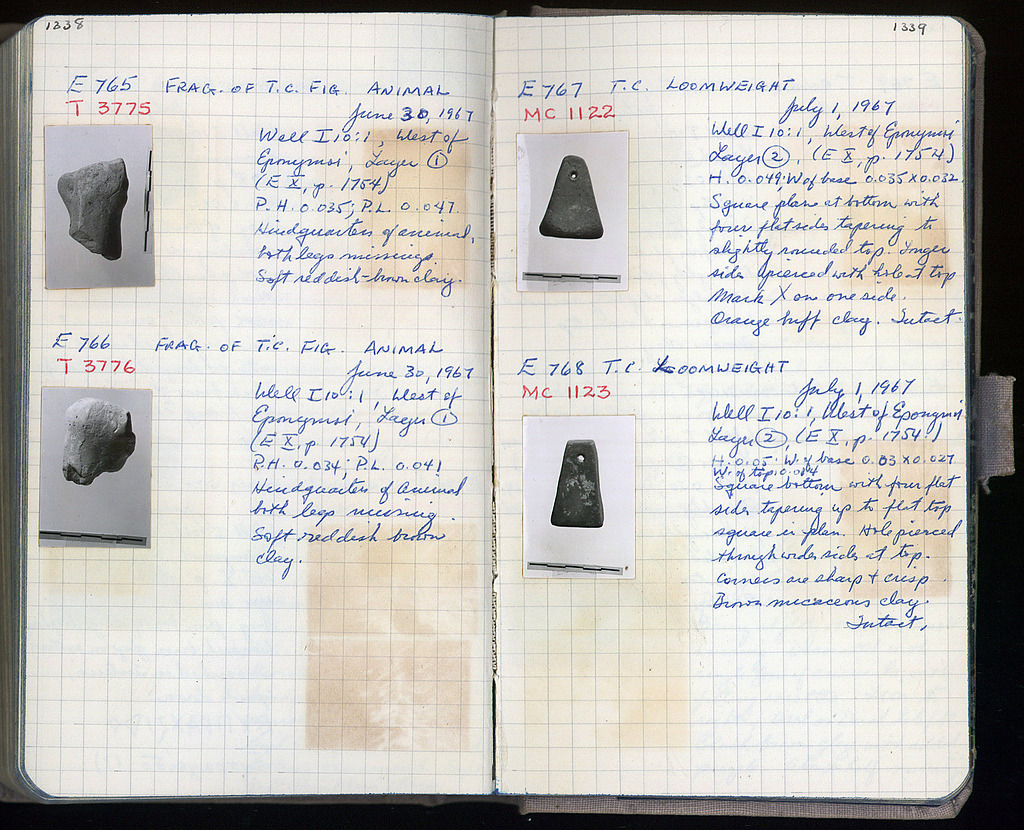 1338
E 765 FRAG. OF T.C. FIG. ANIMAL
T 3775
June 30, 1967
Well I 10:1, West of
Eponymoi, Layer ①
(E X, p. 1754)
P.H. 0.035; P.L. 0.047.
Hindquarters of animal,
both legs missing.
Soft reddish-brown clay.
E 766 FRAG. OF T.C. FIG. ANIMAL
T 3776
June 30, 1967
Well I 10:1, West of
Eponymoi, Layer ①
(E X, p. 1754)
P.H. 0.034; P.L. 0.041
Hindquarters of animal
both legs missing.
Soft reddish brown
clay.
1339
E 767 T.C. LOOMWEIGHT
MC 1122
July 1, 1967
Well I 10:1, West of Eponymoi
Layer ②, (E X, p. 1754)
H. 0.049; W. of base 0.035 x 0.032.
Square plane at bottom with
four flat sides tapering to
slightly rounded top. Longer
sides pierced with hole at top
Mark X on one side.
Orange buff clay. Intact.
E 768 T.C. LOOMWEIGHT
MC 1123
July 1, 1967
Well I 10:1, West of Eponymoi
Layer ② (E X, p. 1754)
H. 0.05; W. of base 0.03 x 0.027
W. of top: 0.014
Square bottom with four flat
sides tapering up to flat top
square in plan. Hole pierced
through wider sides at top.
Corners are sharp + crisp.
Brown micaceous clay.
Intact.